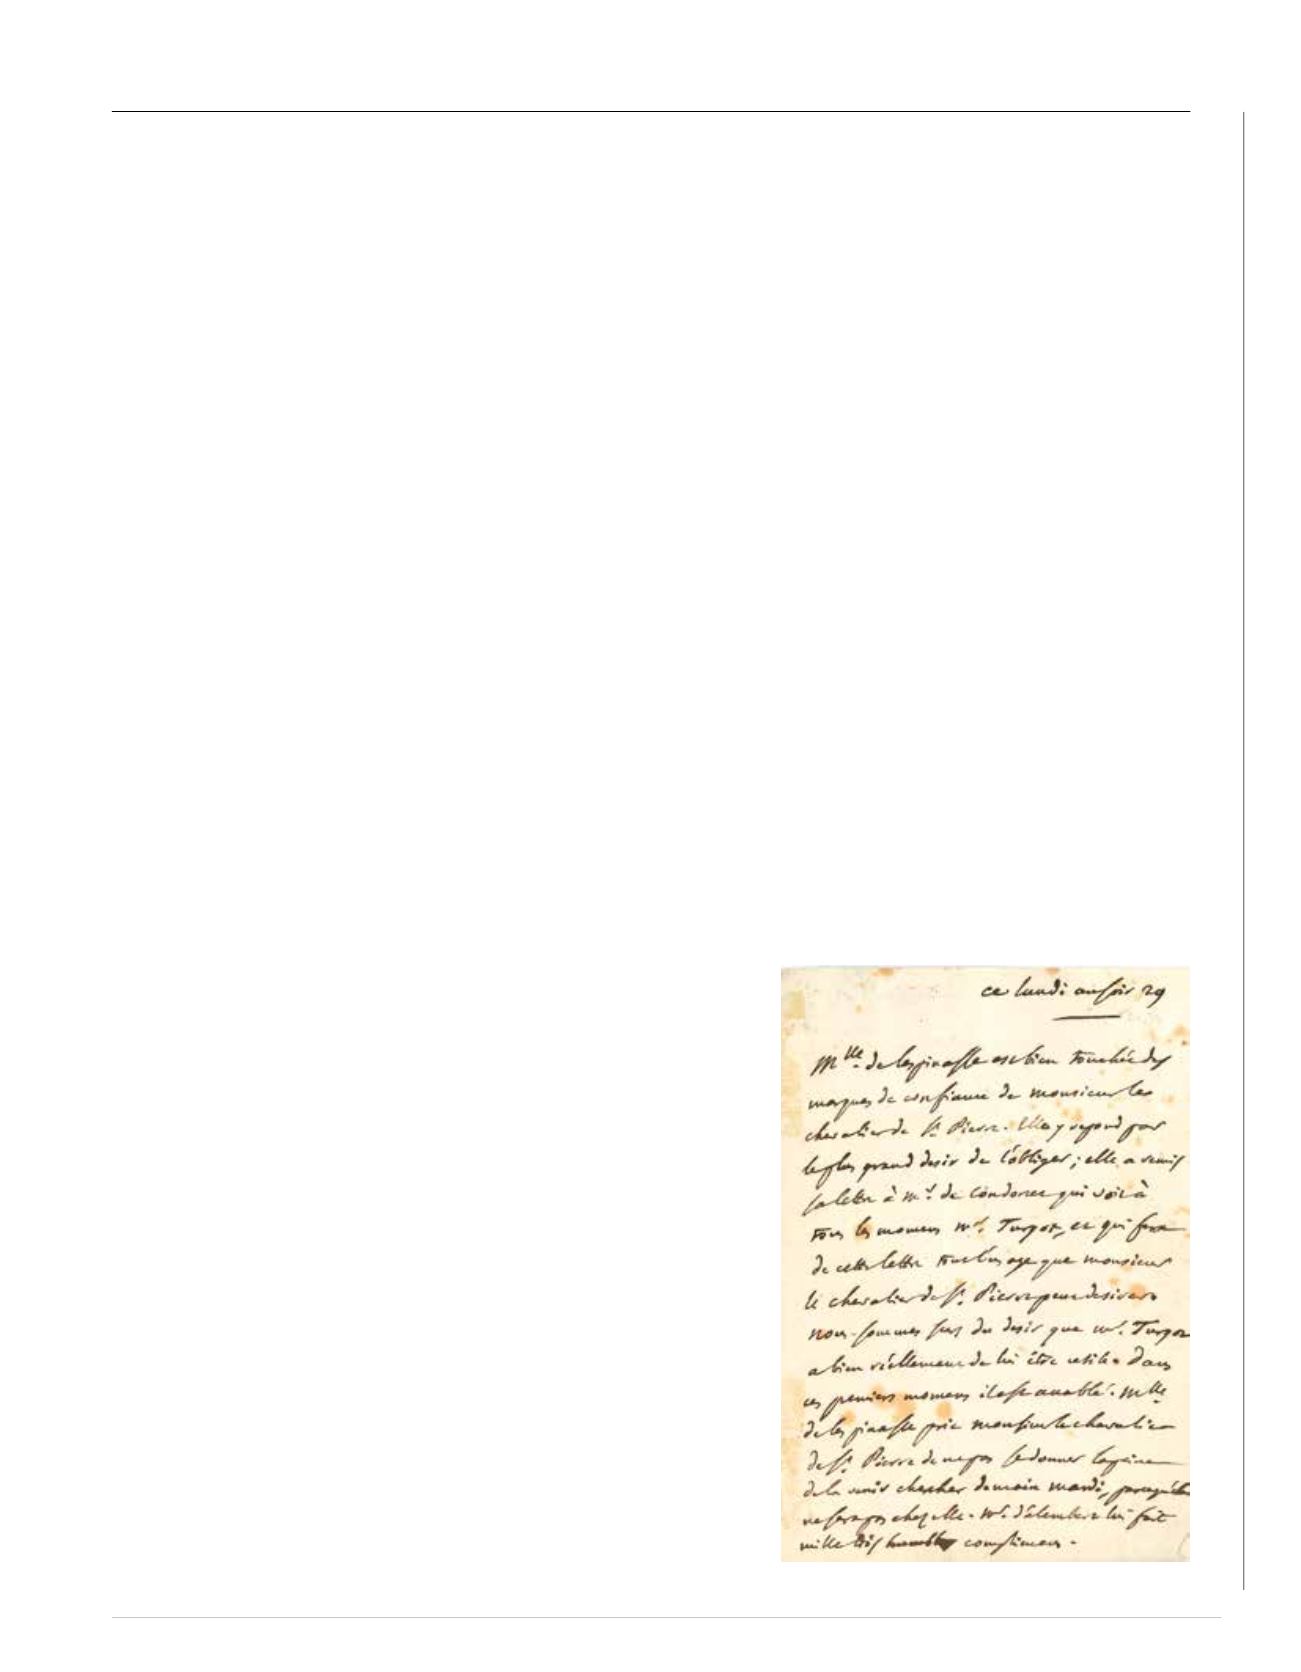 ce lundi au soir 29
Mlle. de lespinasse est bien touchée des
marques de confiance de monsieur le
chevalier de St. Pierre. Elle y repond par
le plus grand desir de l'obliger; elle a remis
sa lettre à mr. de Condorcet qui voit à
tous les momens mr. Turgot, et qui fera
de cette lettre tout l'usage que monsieur
le chevalier de St. Pierre peut desirer.
nous sommes surs du desir que mr. Turgot
a bien réellement de lui être utile. Dans
ces premiers momens il est accablé. Mlle.
de lespinasse prie monsieur le chevalier
de St. Pierre de ne pas se donner la peine
de la venir chercher demain mardi, parcequ'elle
ne sera pas chez elle. Mr. d'alembert lui fait
mille très humbles complimens.